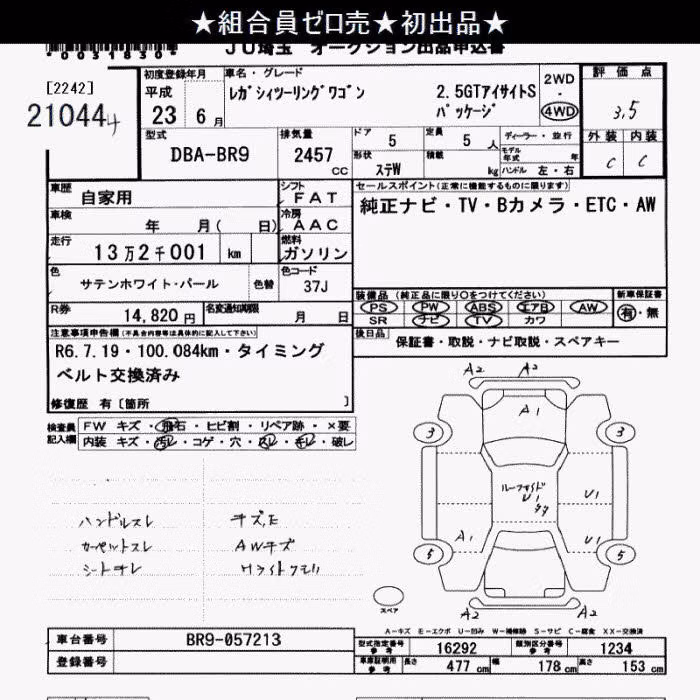 ★組合員ゼロ売★初出品★
*0031830*
JU埼玉 オークション出品申込書
[2242]
21044
初度登録年月
平成
23 6月
車名・グレード
レガシィツーリングワゴン 2.5GTアイサイトS
パッケージ
2WD
・
4WD
評価点
3.5
外装 内装
C C
型式
DBA-BR9
排気量
2457 cc
ドア 5
定員 5 人
形状 ステW
積載 kg
ディーラー・並行
モデル年式 年
ハンドル 左・右
車歴 自家用
シフト FAT
車検 年 月( 日)
冷房 AAC
走行 13万2千001 km
燃料 ガソリン
色 サテンホワイト・パール 色替
色コード 37J
R券 14,820円
名変通知期限 月 日
セールスポイント(正常に機能するものに限ります)
純正ナビ・TV・Bカメラ・ETC・AW
装備品(純正品に限り○をつけてください)
PS PW ABS エアB AW
SR ナビ TV カワ
新車保証書
有・無
後日品 保証書・取説・ナビ取説・スペアキー
注意事項申告欄(不具合内容等は具体的に記入して下さい)
R6.7.19・100.084km・タイミング
ベルト交換済み
修復歴 有〔箇所 〕
検査員記入欄
FW キズ・飛石・ヒビ割・リペア跡・×要
内装 キズ・汚レ・コゲ・穴・スレ・キレ・破レ
ハンドルスレ キズ,E
カーペットスレ AWキズ
シートキレ Hライトクモリ
A2 A2
A1
3 3
ルーフサイド
U1
U1
A1 U1
5 5
A2 A2
スペア
A-キズ E-エクボ U-凹み W-補修跡 S-サビ C-腐食 XX-交換済
車台番号 BR9-057213
登録番号
型式指定番号 参考 16292
類別区分番号 参考 1234
車庫証明用 参考 長さ 477 cm 幅 178 cm 高さ 153 cm